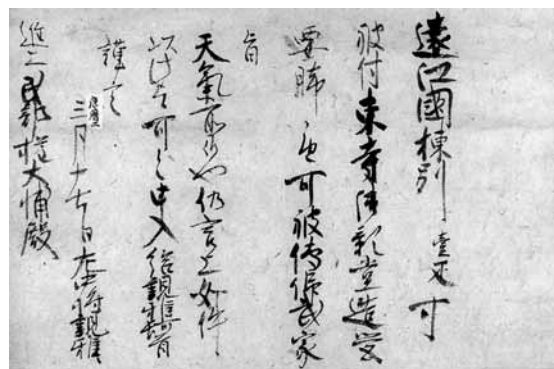 遠江國棟別壹疋可
被付東寺御影堂造営
要脚之由可被傳仰武家
旨
天氣所候也仍言上如件
以此旨可令申入給親雅誠
謹言
三月十七日左中将親雅
進上民部権大輔殿